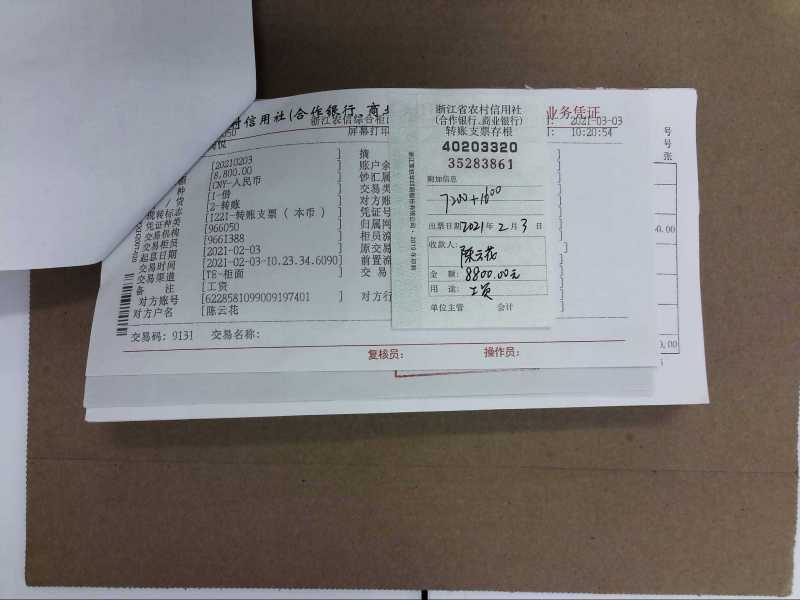 村信用社(合作银行、商业
业务凭证
浙江农信综合柜
屏幕打印
2021-03-03
10:20:54
[20210203]
[8,800.00
[CNY-人民币
[1-借
[2-转账
[122I-转账支票(本币)
[966050
[9661388
[2021-02-03
[2021-02-03-10.23.34.6090]
[TE-柜面
[工资
对方账号 [6228581099009197401]
对方户名 [陈云花
摘
账户余
钞汇属
交易类
对方账
凭证号
归属网
柜员流
原交易
前置流
交 易
对方行
交易码: 9131 交易名称:
复核员: 操作员:
浙江省农村信用社
(合作银行、商业银行)
转账支票存根
40203320
35283861
附加信息
7200+1600
出票日期 2021年 2月 3日
收款人:
陈云花
金 额: 8800.00元
用 途: 工资
单位主管 会计
号
号
张
0.00
0.00